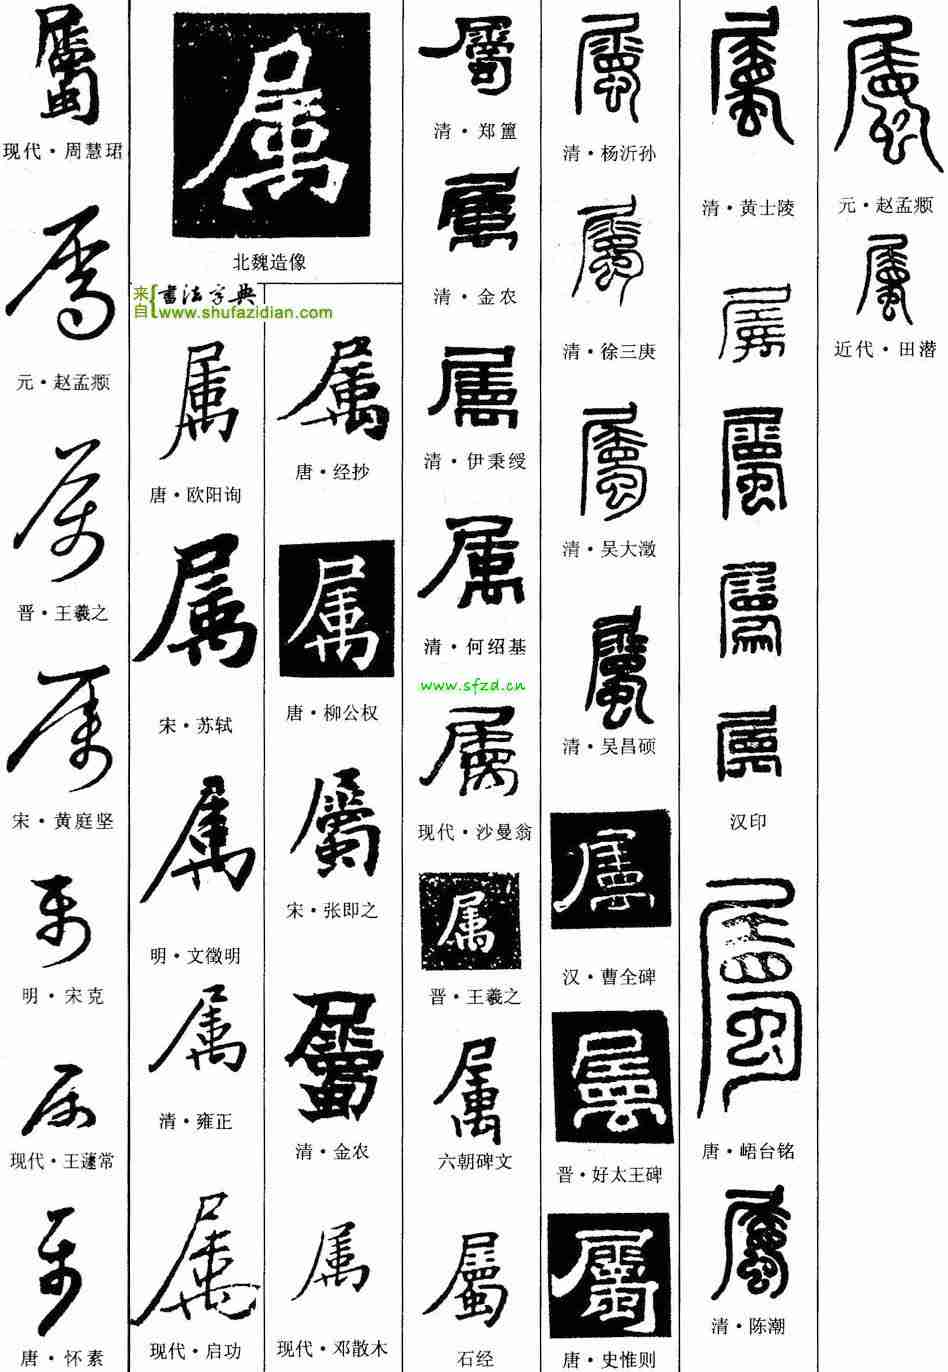 屬
现代·周慧珺
属
元·赵孟頫
属
晋·王羲之
属
宋·黄庭坚
属
明·宋克
属
现代·王蘧常
属
唐·怀素
属
北魏造像
来自{书法字典
www.shufazidian.com
属
唐·欧阳询
属
宋·苏轼
属
明·文徵明
属
清·雍正
属
现代·启功
属
唐·经抄
属
唐·柳公权
屬
宋·张即之
屬
清·金农
属
现代·邓散木
屬
清·郑簠
属
清·金农
属
清·伊秉绶
属
清·何绍基
www.sfzd.cn
属
现代·沙曼翁
属
晋·王羲之
属
六朝碑文
屬
石经
屬
清·杨沂孙
屬
清·徐三庚
屬
清·吴大澂
屬
清·吴昌硕
属
汉·曹全碑
属
晋·好太王碑
屬
唐·史惟则
屬
清·黄士陵
屬
屬
屬
属
汉印
屬
唐·峿台铭
屬
清·陈潮
屬
元·赵孟頫
屬
近代·田潜